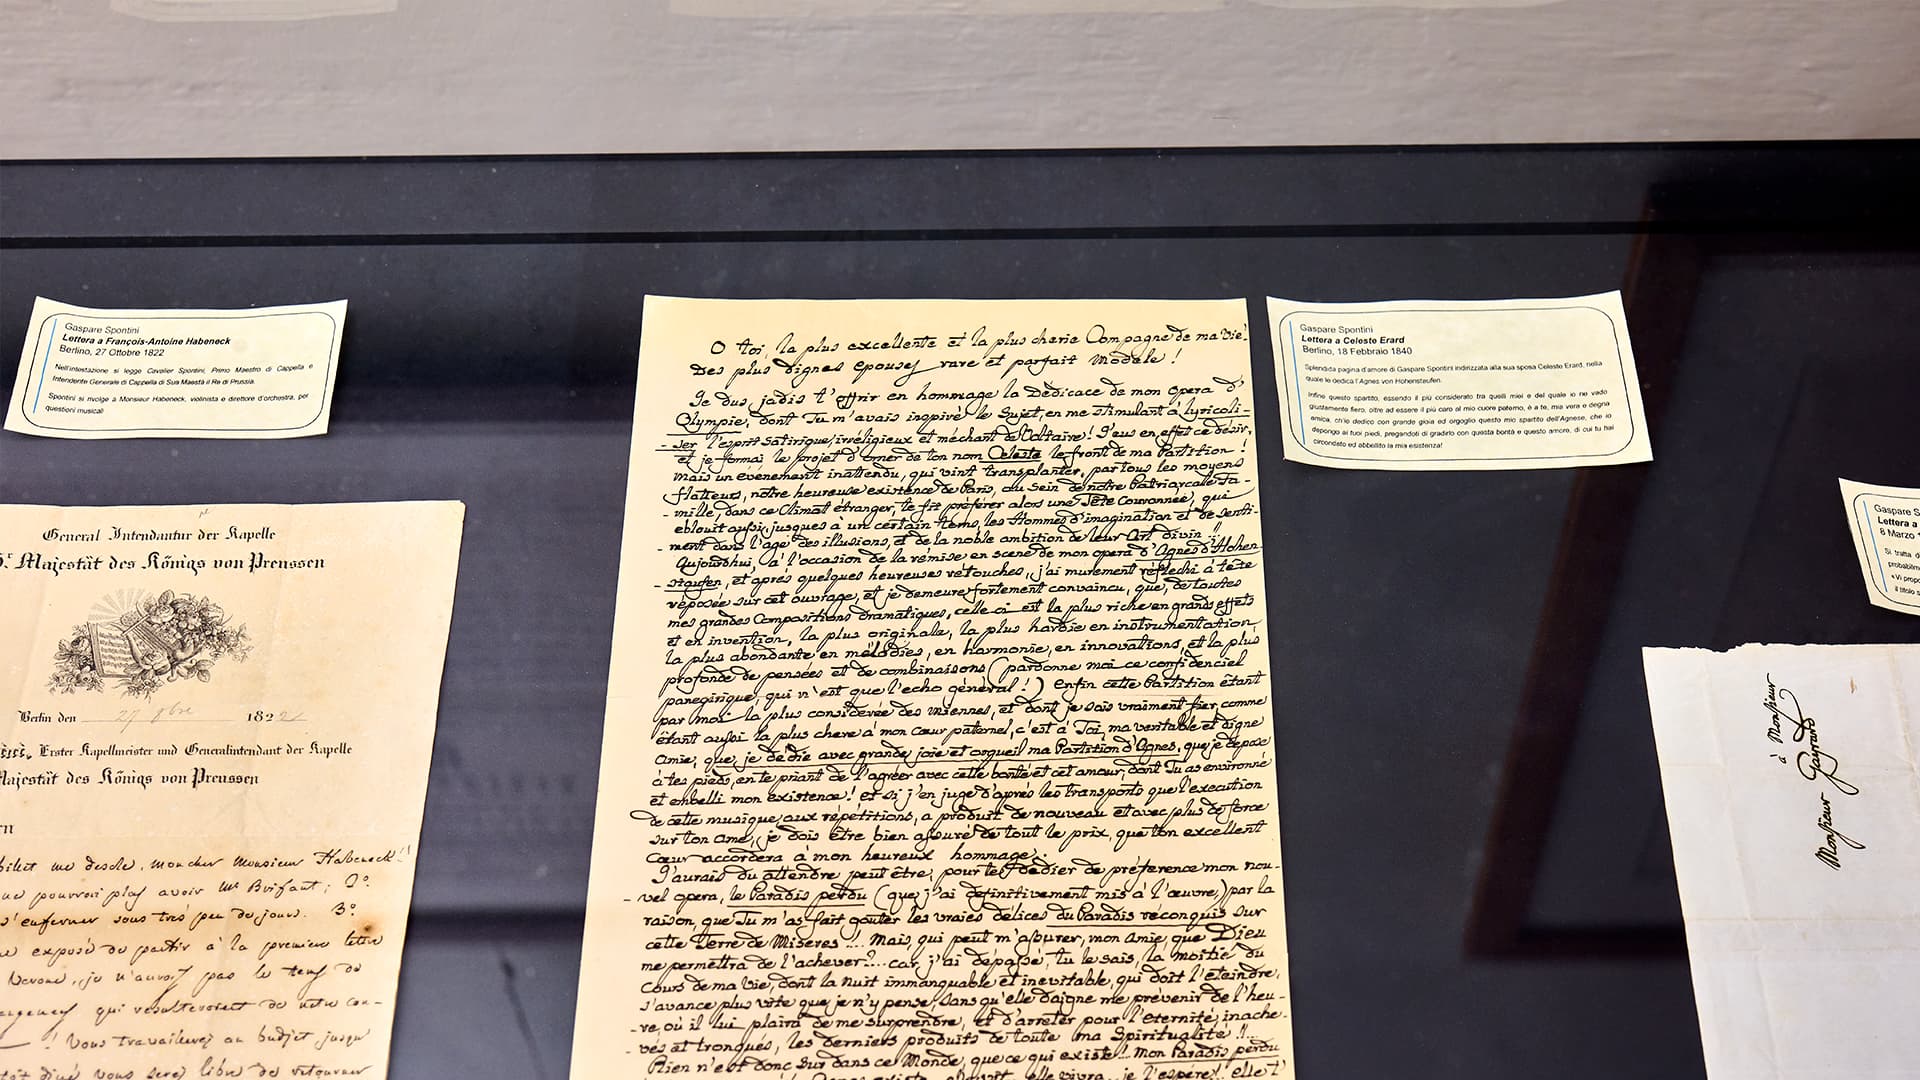 Gaspare Spontini
Lettera a François-Antoine Habeneck
Berlino, 27 Ottobre 1822
Nell'intestazione si legge Cavalier Spontini, Primo Maestro di Cappella e
Intendente Generale di Cappella di Sua Maestà il Re di Prussia.
Spontini si rivolge a Monsieur Habeneck, violinista e direttore d'orchestra, per
questioni musicali
General Intendantur der Kapelle
Sr. Majestät des Königs von Preussen
Berlin den 27 8bre 1822
Erster Kapellmeister und Generalintendant der Kapelle
Majestät des Königs von Preussen
me desole, mon cher Monsieur Habeneck!
pourroi plaf avoir Mr Brifaut; 2º.
s'enfermer sous très peu de jours. 3º.
exposé de partir à la premiere lettre
Verone, je n'aurois pas le tems de
qui resulteroient de notre con-
! Vous travaillerez au budjet jusqu
vous serez libre de retourner
O toi, la plus excellente et la plus cherie Compagne de ma Vie!
Des plus dignes epouses rare et parfait Modèle!
Je dus, jadis t'offrir en hommage la Dédicace de mon Opera d'
Olympie, dont Tu m'avais inspiré le Sujet, en me stimulant à lyricoli-
-ser l'esprit satirique, irréligieux et méchant de Voltaire! J'eus en effet ce désir,
et je formai le projet d'orner de ton nom Celeste le front de ma Partition!
Mais un événement inattendu, qui vint transplanter, par tous les moyens
flatteurs, nôtre heureuse existence de Paris, au sein de nôtre Patriarcale Fa-
-mille, dans ce Climat étranger, te fit préférer alors une Tête Couronnée, qui
eblouit aussi, jusques à un certain tems, les Hommes d'imagination et de senti-
-ment dans l'age des illusions, et de la noble ambition de leur Art divin!!
Aujourdhui, à l'occasion de la rémise en scene de mon opera d'Agnes d'Hohen
-staufen, et après quelques heureuses retouches, j'ai murement réflechi à tête
réposée sur cet ouvrage, et je demeure fortement convaincu, que, de toutes
mes grandes Compositions dramatiques, celle-ci est la plus riche en grands effets
et en invention, la plus originale, la plus hardie en instrumentation,
la plus abondante en mélodies, en harmonie, en innovations, et la plus
profonde de pensées et de combinaisons (pardonne moi ce confidenciel
panegirique, qui n'est que l'echo général!) Enfin cette Partition étant
par moi la plus considerée des miennes, et dont je sais vraiment fier, comme
étant aussi la plus chere à mon cœur paternel, c'est à Toi, ma veritable et digne
Amie, que je dédie avec grande joie et orgueil ma Partition d'Agnes, que je depose
à tes pieds, en te priant de l'agréer avec cette bonté et cet amour, dont Tu as environné
et embelli mon existence! et si j'en juge d'après les transports que l'execution
de cette musique, aux répétitions, a produit de nouveau et avec plus de force
sur ton Ame, je dois être bien assuré de tout le prix, que ton excellent
Cœur accordera à mon heureux hommage.
J'aurais du attendre peut être, pour te dédier de préference mon nou-
-vel opera, le Paradis perdu (que j'ai definitivement mis à l'œuvre,) par la
raison, que Tu m'as fait gouter les vraies délices du Paradis réconquis sur
cette Terre de Miseres!!.. Mais, qui peut m'assurer, mon Amie, que Dieu
me permettra de l'achever?... car, j'ai dépassé, tu le sais, la moitié du
Cours de ma Vie, dont la Nuit immanquable et inevitable, qui doit l'eteindre,
s'avance plus vite que je n'y pense, sans qu'elle daigne me prévenir de l'heu-
-re, où il lui plaira de me surprendre, et d'arreter pour l'eternité, inache-
-vés et tronqués, les derniers produits de toute ma Spiritualité!!..
Rien n'est donc sur dans ce Monde, que ce qui existe! Mon Paradis perdu
elle vivra.. je l'espére! elle t'
Gaspare Spontini
Lettera a Celeste Erard
Berlino, 18 Febbraio 1840
Splendida pagina d'amore di Gaspare Spontini indirizzata alla sua sposa Celeste Erard, nella
quale le dedica l'Agnes von Hohenstaufen.
Infine questo spartito, essendo il più considerato tra quelli miei e del quale io ne vado
giustamente fiero, oltre ad essere il più caro al mio cuore paterno, è a te, mia vera e degna
amica, ch'io dedico con grande gioia ed orgoglio questo mio spartito dell'Agnese, che io
depongo ai tuoi piedi, pregandoti di gradirlo con questa bontà e questo amore, di cui tu hai
circondato ed abbellito la mia esistenza!
Gaspare S
Lettera a
8 Marzo 1
Si tratta d
probabilm
«Vi propo
il titolo s
à Monsieur
Monsieur Gayrard